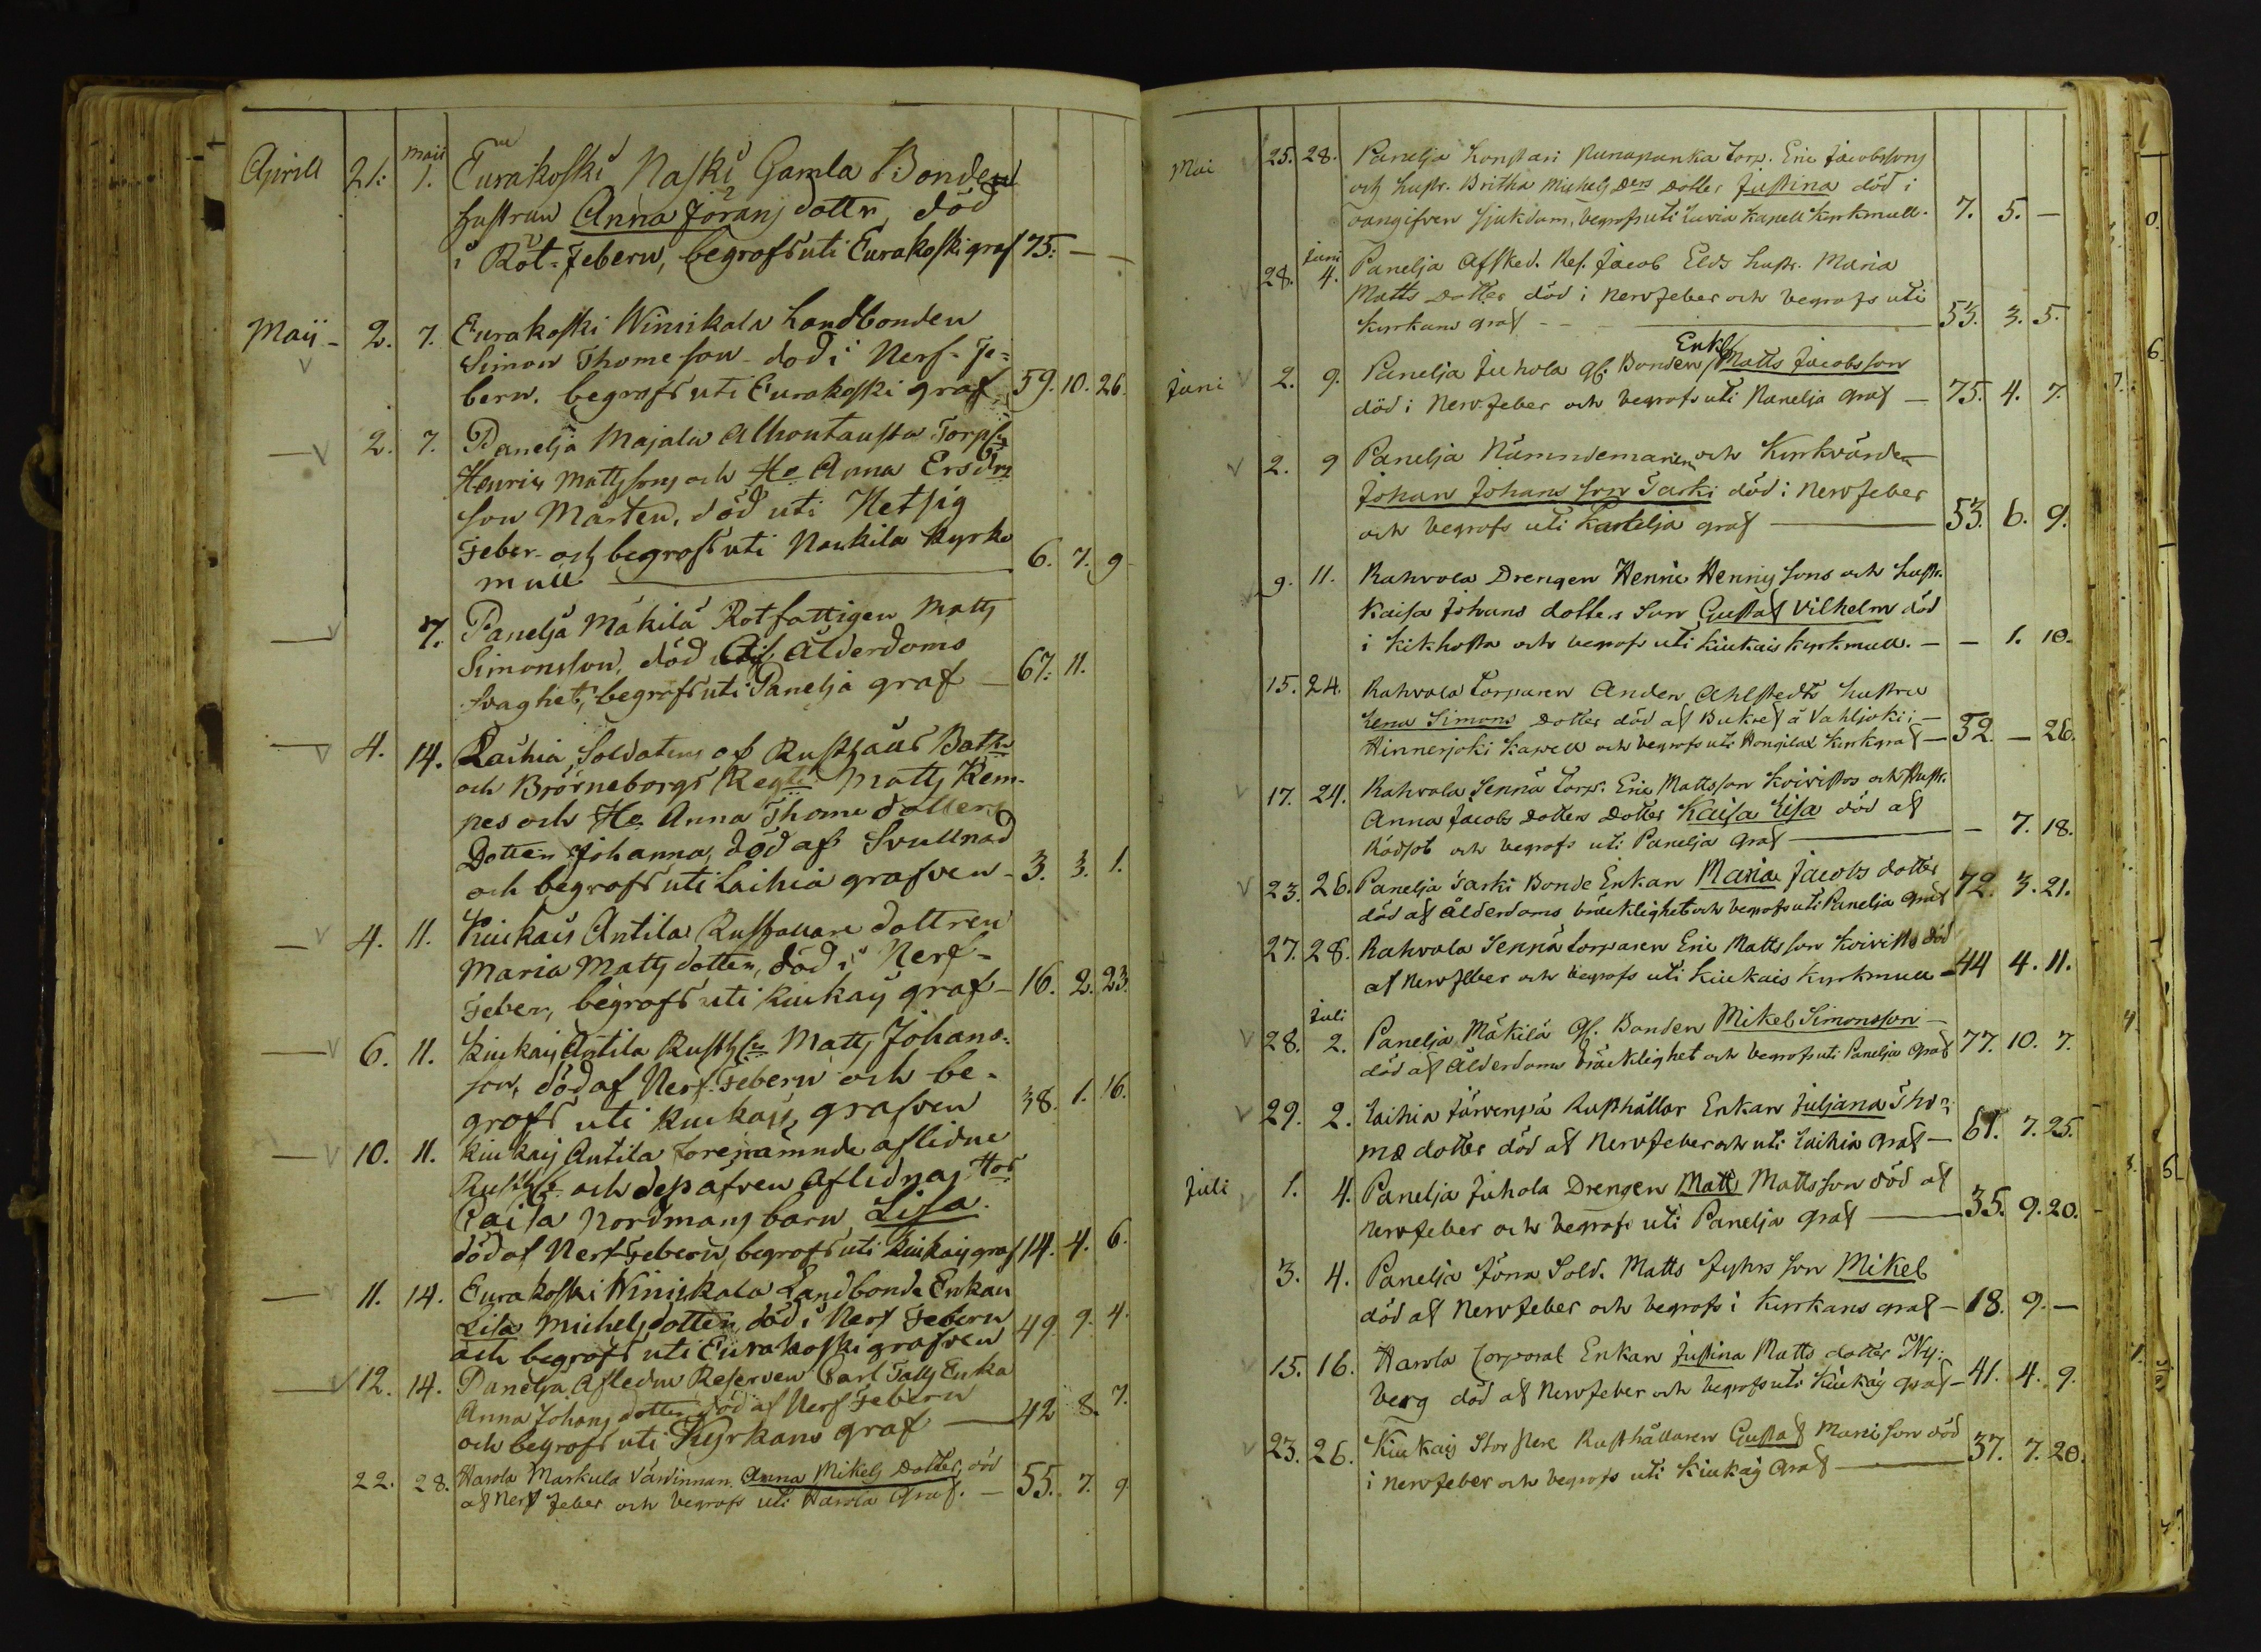 Aprill 21. Maii 1. Eurakoski Naski Gamla Bonden
hustrun Anna Jöransdotter, död
i Röt-Febern, begrofs uti Eurakoski graf 75. — —
Maij 2. 7. Eurakoski Winnikala Landbonden
Simon Thomeson död i Nerf-Fe-
bern. begrofs uti Eurakoski graf 59. 10. 26.
2. 7. Panelja Majala Alhontausta Torp
Henric Mattssons och Ho Anna Ersdr
son Mårten, död uti Hetsig
Feber och begrofs uti Kyrko
mull 6. 7. 9
7. Panelja Mäkilä Rotfattigen Matts
Simonsson, död af Ålderdoms
svaghet, begrofs uti Panelja graf — 67. 11.
4. 14. Laihia Soldatens af Rusthålls Batn
och Björneborgs Regte Matts Kem-
pes och Ho Anna Thome dotters
Dotter Johanna, död af Svullnad
och begrofs uti Laihia grafven 3. 3. 1.
4. 11. Kiukais Antila Rusthållare dottren
Maria Matts dotter, död i Nerf-
Feber, begrofs uti Kiukais graf — 16. 2. 23.
6. 11. Kiukais Antila Rusth Matts Johans-
son, död af Nerf-Febern och be-
grofs uti Kiukais grafven 38. 1. 16.
10. 11. Kiukais Antila förenämnde aflidne
och dess äfven aflidnas Hos
Caisa Nordmans barn Lisa.
död af Nerf-Febern, begrofs uti Kiukais graf 14. 4. 6.
11. 14. Eurakoski Winikala Landbonde Enkan
Lisa Michelsdotter, död i Nerf Febern
och begrofs uti Eurakoski grafven 49. 9. 4.
12. 14. Panelja Afledne Reserven Carl Enka
Anna Johans dotter död af Nerf Febern
och begrofs uti Kyrkans graf — 42 8. 7.
22. 28. Harola Markula Värdinnan Anna Mikels Dotter, död
af Nerf feber och begrofs uti Harola Graf. — 55. 7. 9
Mai 25. 28. Panelja Konstari Torp. Eric Jacobssons
och hustr. Britha Michels Ders Dotter Justina död i
oangifven sjukdom, begrofs uti Luvia Kapell Kyrkmull. 7. 5. —
28. Juni 4. Panelja Afsked. Res. Jacob Elds hustr. Maria
Matts Dotter död i Nervfeber och begrofs uti
Kyrkans graf — 53. 3. 5.
Enkl
Juni 2. 9. Panelja Juhola gl. Bonden Matts Jacobsson
död i Nervfeber och begrofs uti Panelja graf — 75. 4. 7.
2. 9 Panelja Nämndemannen och Kyrkvärden
Johan Johans son Sarki död i Nervfeber
och begrofs uti Panelja graf — 53. 6. 9.
9. 11. Rahvola Drengen Henric Henrics sons och hustr.
Kaisa Johans dotters Son Gustaf Vilhelm död
i Kikhosta och begrofs uti Kiukais Kyrkmull. — — 1. 10.
15. 24. Rahvola Torparen Anders Ahlstedts hustru
Lena Simons Dotter död af Bukref å Vahljoki i
Hinnerjoki Kapell och begrofs uti Kyrkgraf — 52. — 26.
17. 24. Rahvola Sennä Torp. Eric Mattsson Koivistos och Hustr.
Anna Jacobs dotters Dotter Kaisa Lisa död af
Rödsot och begrofs uti Panelja graf — — 7. 18.
23. 26. Panelja Sarki Bonde Enkan Maria Jacobs dotter
död af Ålderdoms bräcklighet och begrofs uti Panelja graf 72. 3. 21.
27. 28. Rahvola Sennä Torparen Eric Matts son Koivisto död
af Nervfeber och begrofs uti Kiukais Kyrkmull — 44 4. 11.
28. Juli 2. Panelja Mäkilä Gl. Bonden Mikel Simonsson
död af Ålderdoms bräcklighet och begrofs uti Panelja Graf 77. 10. 7.
29. 2. Laihia Järvenpä Rusthållar Enkan Juljana Tho-
mæ dotter död af Nervfeber och uti Laihia Graf — 61. 7. 25.
Juli 1. 4. Panelja Juhola Drengen Matts Matts son död af
nervfeber och begrofs uti Panelja graf — 35. 9. 20.
3. 4. Panelja Jöna Sold. Matts son Mikel
död af Nervfeber och begrofs i Kyrkans graf — 18. 9. —
15. 16. Harola Corporal Enkan Justina Matts dotter Ny-
berg död af Nervfeber och begrofs uti Kiukais graf — 41. 4. 9.
23. 26. Kiukais Stor Rusthållaren Gustaf son död
i nervfeber och begrofs uti Kiukais Graf — 37. 7. 20.